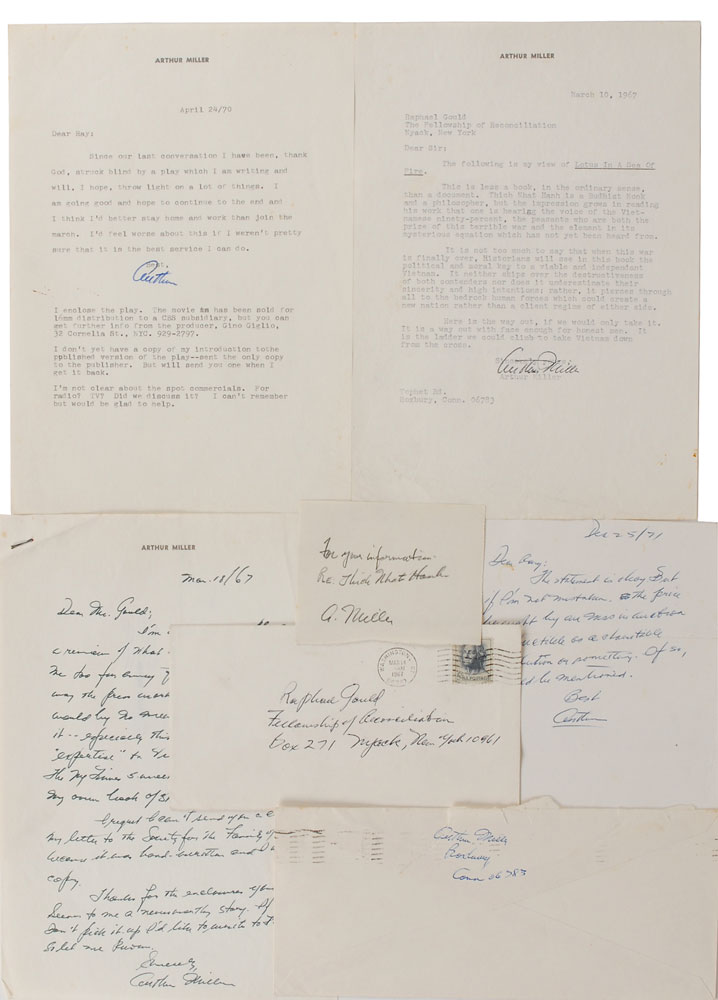 ARTHUR MILLER
April 24/70
Dear Ray;
Since our last conversation I have been, thank
God, struck blind by a play which I am writing and
will, I hope, throw light on a lot of things. I
am going good and hope to continue to the end and
I think I'd better stay home and work than join the
march. I'd feel worse about this if I weren't pretty
sure that it is the best service I can do.
Best,
Arthur
I enclose the play. The movie has been sold for
16mm distribution to a CBS subsidiary, but you can
get further info from the producer, Gino Giglio,
32 Cornelia St., NYC. 929-2797.
I don't yet have a copy of my introduction to the
published version of the play--sent the only copy
to the publisher. But will send you one when I
get it back.
I'm not clear about the spot commercials. For
radio? TV? Did we discuss it? I can't remember
but would be glad to help.
ARTHUR MILLER
March 10, 1967
Raphael Gould
The Fellowship of Reconciliation
Nyack, New York
Dear Sir;
The following is my view of Lotus In A Sea Of
Fire.
This is less a book, in the ordinary sense,
than a document. Thich Nhat Hanh is a Buddhist Monk
and a philosopher, but the impression grows in reading
his work that one is hearing the voice of the Viet-
namese ninety-percent, the peasants who are both the
prize of this terrible war and the element in its
mysterious equation which has not yet been heard from.
It is not too much to say that when this war
is finally over, Historians will see in this book the
political and moral key to a viable and independent
Vietnam. It neither skips over the destructiveness
of both contenders nor does it underestimate their
sincerity and high intentions; rather, it pierces through
all to the bedrock human forces which could create a
new nation rather than a client regime of either side.
Here is the way out, if we would only take it.
It is a way out with face enough for honest men. It
is the ladder we could climb to take Vietnam down
from the cross.
Arthur Miller
Arthur Miller
Tophet Rd.
Roxbury, Conn. 06783
ARTHUR MILLER
Mar. 18/67
Dear Mr. Gould;
I'm
a review of Nhat
me too far away
way the press
would by no means
it — especially this
"expertise" in
the NY Times
my own book of
I regret I can't send you a
my letter to the Society for the Family of
because it was hand-written and
copy.
Thanks for the enclosures
Seems to me a newsworthy story. If
don't pick it up I'd like to write to
so let me know.
Sincerely,
Arthur Miller
For your information
Re: Thich Nhat Hanh
A. Miller
Dec 25/71
Dear Ray;
The statement is okay. But
if I'm not mistaken the price
by an
as a charitable
or something. If so,
be mentioned.
Best
Arthur
Raphael Gould
Fellowship of Reconciliation
Box 271 Nyack, New York 10961
Arthur Miller
Roxbury
Conn 06783